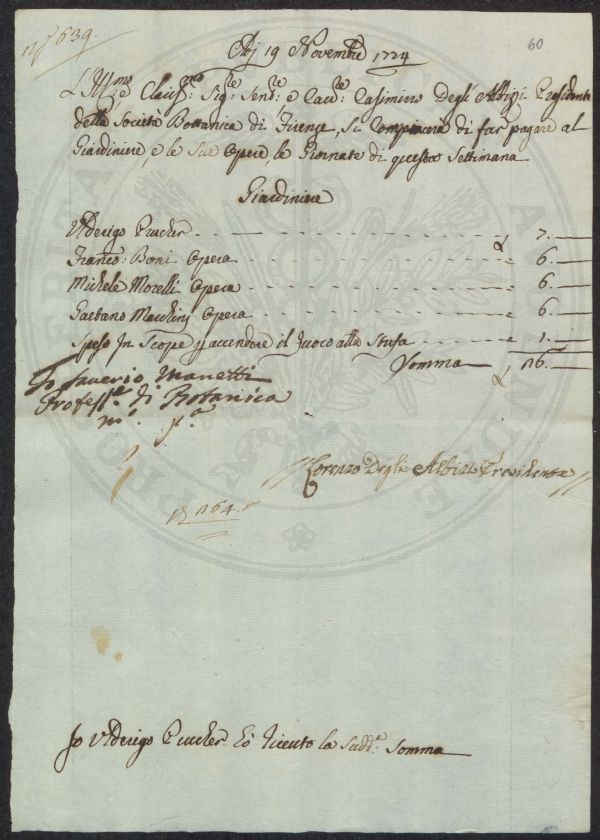 N.° 639.
60
Adj 19 Novembre 1774
L'Ill.mo e Clariss.mo Sig.re Sen.re e Cav.re Casimiro Degli Albizi Presidente
della Società Bottanica di Firenze, Si Compiacerà di far pagare al
Giardiniere, e le Sue Opere le Giornate di questa Settimana
Giardiniere
Ulderigo Prucher 7.
Franco: Boni Opera 6.
Michele Morelli Opera 6.
Gaetano Maschinj Opera 6.
Speso In Scope p accendere il fuoco alla Stufa 1.
Somma 26.
Io Saverio Manetti
Profess.e di Botanica
m.o p.a
Lorenzo Degli Albizi Presidente
164
Jo Ulderigo Prucher hò riceuto la Sudd.a Somma